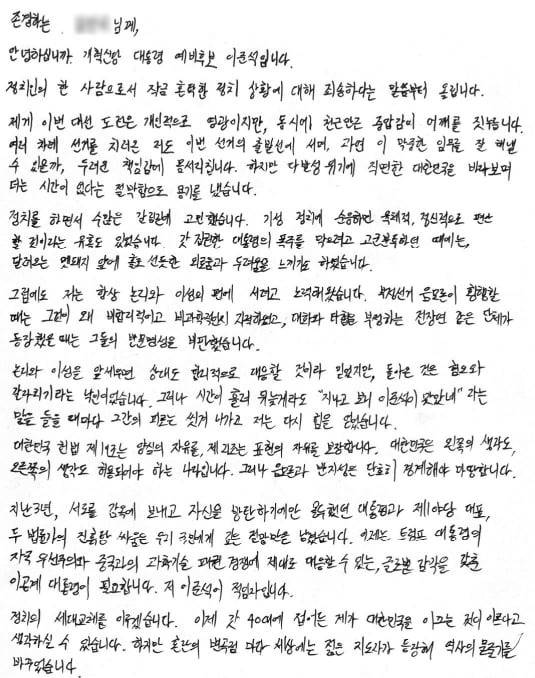 존경하는 님께,
안녕하십니까. 개혁신당 대통령 예비후보 이준석입니다.
정치인의 한 사람으로서 작금 혼탁한 정치 상황에 대해 죄송하다는 말씀부터 올립니다.
제게 이번 대선 도전은 개인적으로 영광이지만, 동시에 천근만근 중압감이 어깨를 짓누릅니다.
여러 차례 선거를 치러온 저도 이번 선거의 출발선에 서며, 과연 이 막중한 임무를 잘 해낼
수 있을까, 두려운 책임감에 몸서리칩니다. 하지만 다발성 위기에 직면한 대한민국을 바라보며
더는 시간이 없다는 절박함으로 용기를 냈습니다.
정치를 하면서 수많은 갈림길에 고민했습니다. 기성 정치에 순응하면 육체적, 정신적으로 편안
할 것이라는 유혹도 있었습니다. 갓 집권한 대통령의 폭주를 막으려고 고군분투하던 때에는,
달려오는 멧돼지 앞에 홀로 선듯한 외로움과 두려움을 느끼기도 하였습니다.
그럼에도 저는 항상 논리와 이성의 편에 서려고 노력해왔습니다. 부정선거 음모론이 횡행할
때는 그것이 왜 비합리적이고 비과학적인지 지적하였고, 대화와 타협을 부정하는 전장연 같은 단체가
등장했을 때는 그들의 반문명성을 비판했습니다.
논리와 이성을 앞세우면 상대도 합리적으로 대응할 것이라 믿었지만, 돌아온 것은 혐오와
갈라치기라는 낙인이었습니다. 그러나 시간이 흘러 뒤늦게라도 "지나고 보니 이준석이 맞았네" 라는
말을 들을 때마다 그간의 피로는 씻겨 나가고 저는 다시 힘을 얻었습니다.
대한민국 헌법 제19조는 양심의 자유를, 제21조는 표현의 자유를 보장합니다. 대한민국은 왼쪽의 생각도,
오른쪽의 생각도 허용되어야 하는 나라입니다. 그러나 음모론과 반지성은 단호히 경계해야 마땅합니다.
지난 3년, 서로를 감옥에 보내고 자신을 방탄하기에만 몰두했던 대통령과 제1야당 대표,
두 법률가의 진흙탕 싸움은 우리 국민에게 깊은 절망만을 남겼습니다. 이제는 트럼프 대통령의
자국 우선주의와 중국과의 과학기술 패권 경쟁에 제대로 대응할 수 있는, 글로벌 감각을 갖춘
이공계 대통령이 필요합니다. 저 이준석이 적임자입니다.
정치의 세대교체를 이루겠습니다. 이제 갓 40대에 접어든 제가 대한민국을 이끄는 것이 이르다고
생각하실 수 있습니다. 하지만 혼란의 변곡점 마다 세상에는 젊은 지도자가 등장해 역사의 물줄기를
바꾸었습니다.